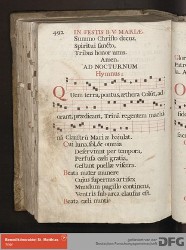 492 IN FESTIS B. V. MARIÆ.
Summo Christo decus,
Spiritui sancto,
Tribus honor unus.
Amen.
AD NOCTURNUM
Hymnus.
Quem terra, pontus, æthera Colunt, ad-
orant, prædicant, Trinã regentem machi-
nã Claustrũ Mariæ baiulat.
Cui luna, sol, & omnia
Deserviunt per tempora,
Perfusa cœli gratia,
Gestant puellæ viscera.
Beata mater munere
Cuius supernus artifex
Mundum pugillo continens,
Ventris sub arca clausus est.
Beata cœli nuntio
Benediktinerabtei St. Matthias
DFG